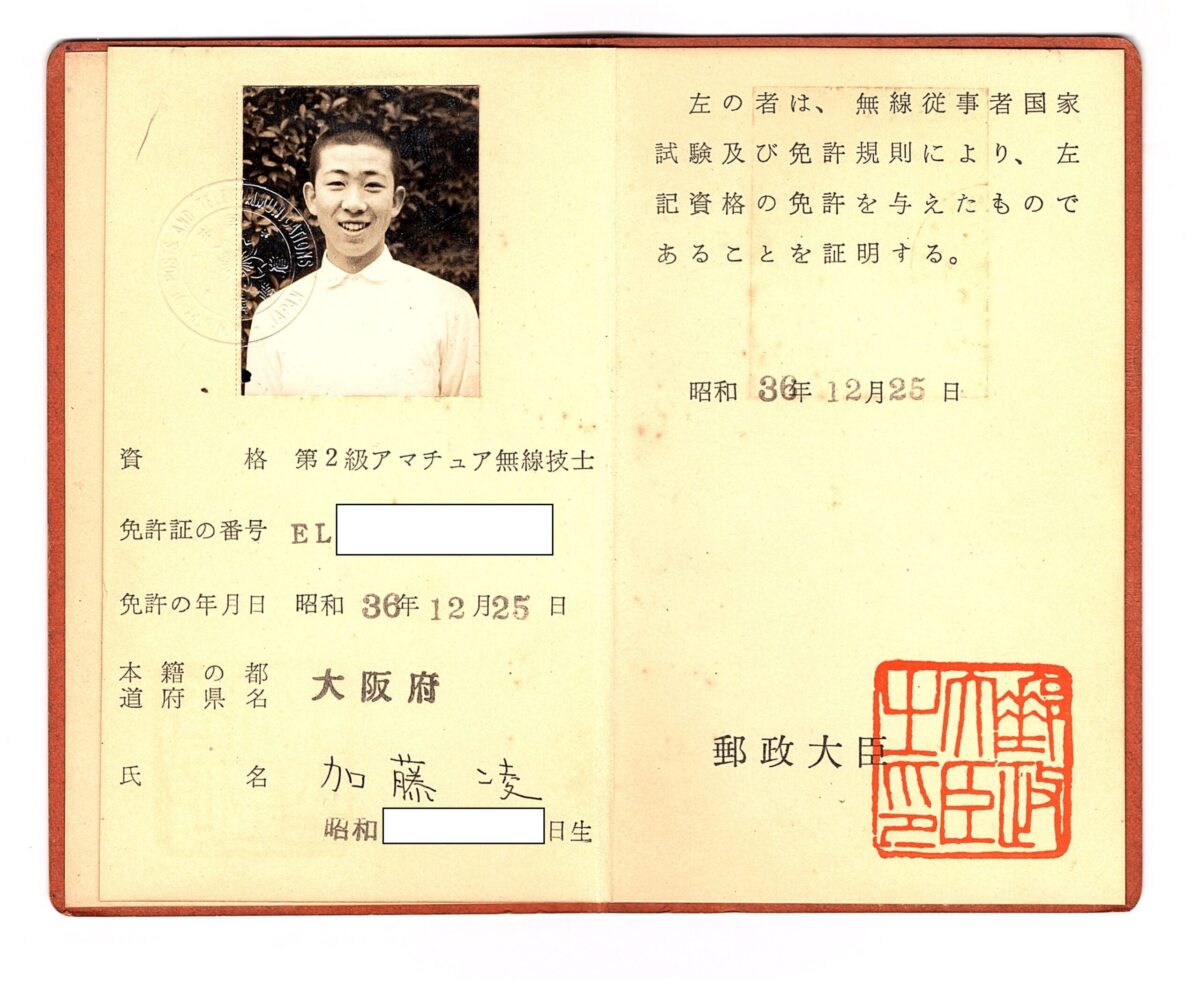 資格 第2級アマチュア無線技士
免許証の番号 EL
免許の年月日 昭和 36年 12月25日
本籍の都
道府県名 大阪府
氏名 加藤 凌
昭和 日生
左の者は、無線従事者国家
試験及び免許規則により、左
記資格の免許を与えたもので
あることを証明する。
昭和 36年 12月25日
郵政大臣
郵政
大臣
之印